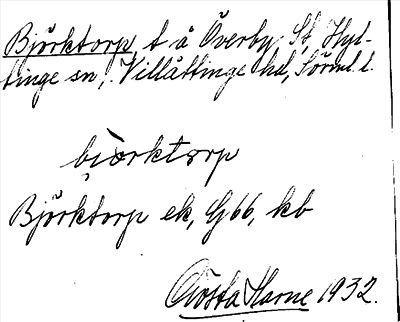 Björktorp, t å Överby, St, Hyl-
tinge sn, Villåttinge hd, Sörml. l.
biorktorp
Björktorp ek, G66, kb
Gösta Harne 1932.